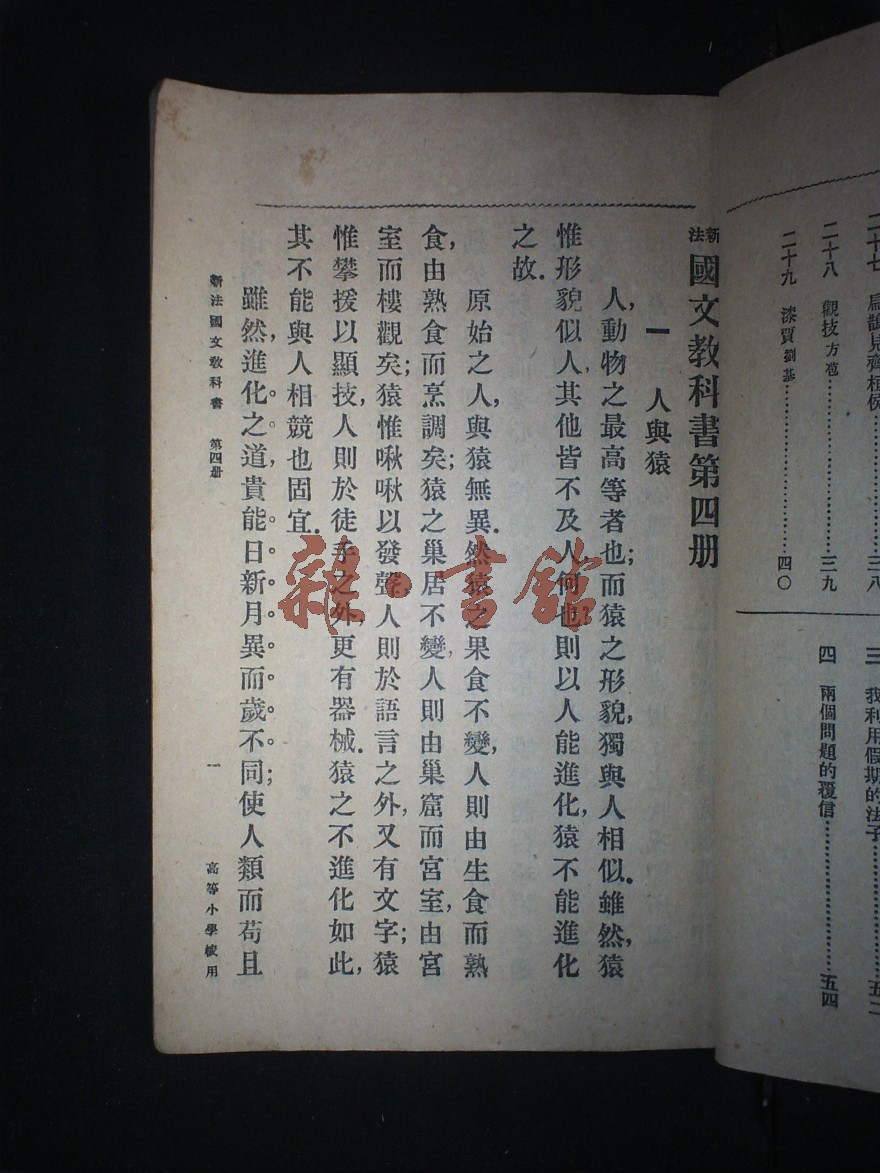 二十七 扁鵲見齊桓侯
二十八 觀技 方苞……三九
二十九 漆賈 劉基……四〇
三 我利用假期的法子……五二
四 兩個問題的覆信……五四
新法國文教科書第四册
一 人與猿
人，動物之最高等者也；而猿之形貌，獨與人相似．雖然，猿
惟形貌似人，其他皆不及人，何也？則以人能進化，猿不能進化
之故．
原始之人，與猿無異．然猿之果食不變，人則由生食而熟
食，由熟食而烹調矣；猿之巢居不變，人則由巢窟而宮室，由宮
室而樓觀矣；猿惟啾啾以發聲，人則於語言之外，又有文字；猿
惟攀援以顯技，人則於徒手之外，更有器械．猿之不進化如此，
其不能與人相競也固宜．
雖然，進化之道，貴能日新月異而歲不同；使人類而苟且
新法國文教科書 第四册
一
高等小學校用
雜·書館